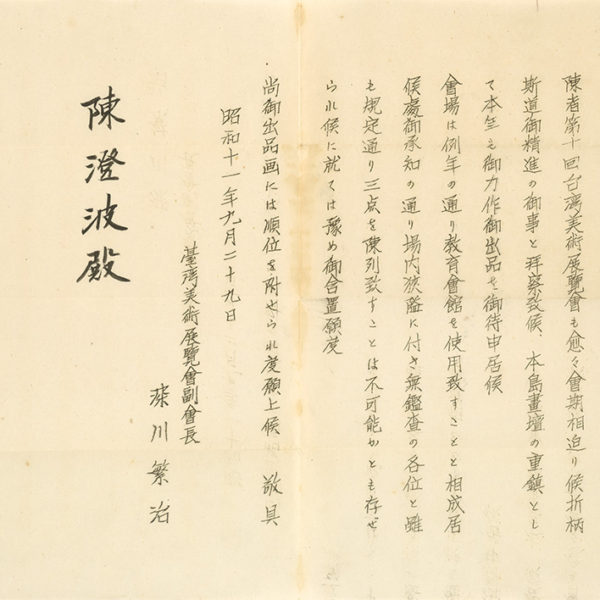 陳者第十回台湾美術展覽會も愈々會期相迫り候折柄
斯道御精進の御事と拜察致候、本島畫壇の重鎮とし
て本年も御力作御出品を御待申居候
會場は例年の通り教育會館を使用致すことと相成居
候處御承知の通り場内狹隘に付き無鑑查の各位と雖
も規定通り三点を陳列致すことは不可能かとも存ぜ
られ候に就ては豫め御含置願度
尚御出品画には順位を附せられ度願上候　敬具
昭和十一年九月二十九日
臺灣美術展覽會副會長
深川繁治
陳澄波殿